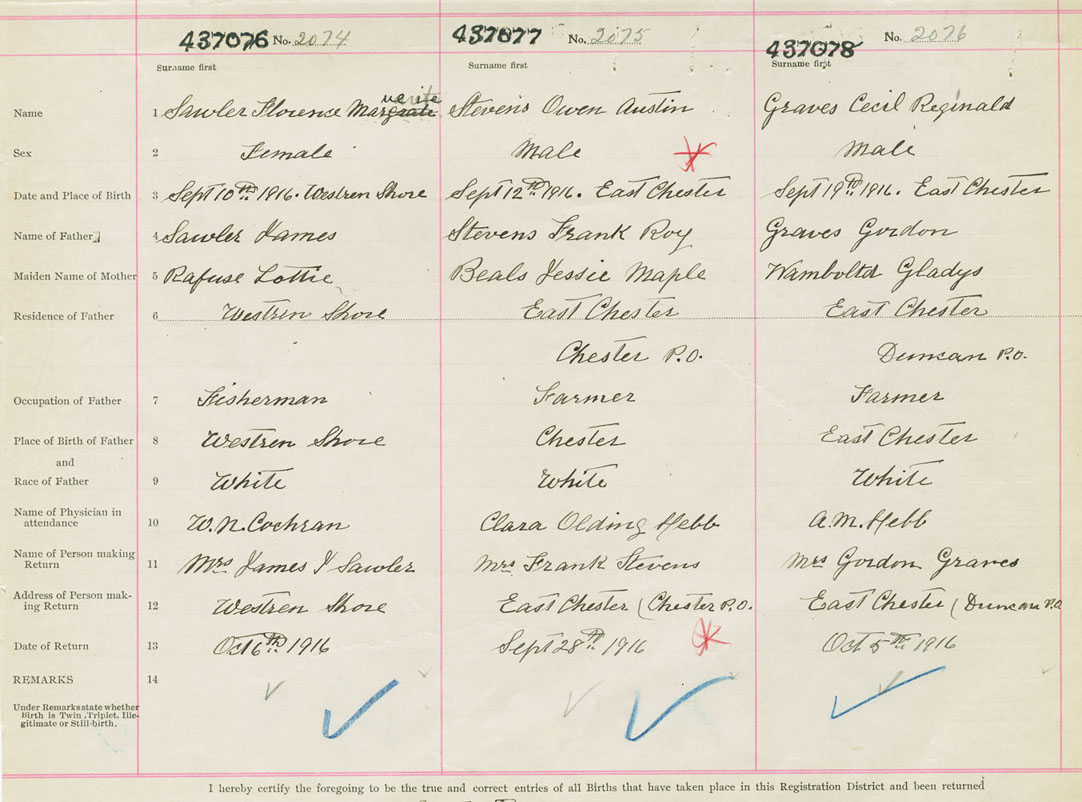 437076 No. 2074 437077 No. 2075 437078 No. 2076
Surname first Surname first Surname first
Name 1 Sawler Florence Marguerite Stevens Owen Austin Graves Cecil Reginald
Sex 2 Female Male Male
Date and Place of Birth 3 Sept 10th 1916. Westren Shore Sept 12th 1916. East Chester Sept 19th 1916. East Chester
Name of Father 4 Sawler James Stevens Frank Roy Graves Gordon
Maiden Name of Mother 5 Rafuse Lottie Beals Jessie Maple Wamboltd Gladys
Residence of Father 6 Westren Shore East Chester East Chester
Chester P.O. Duncan P.O.
Occupation of Father 7 Fisherman Farmer Farmer
Place of Birth of Father 8 Westren Shore Chester East Chester
and
Race of Father 9 White White White
Name of Physician in
attendance 10 W.N. Cochran Clara Olding Hebb A.M. Hebb
Name of Person making
Return 11 Mrs James I Sawler Mrs Frank Stevens Mrs Gordon Graves
Address of Person mak-
ing Return 12 Westren Shore East Chester (Chester P.O. East Chester (Duncan P.O.
Date of Return 13 Oct 6th 1916 Sept 28th 1916 Oct 5th 1916
REMARKS 14
Under Remarks state whether
Birth is Twin, Triplet, Ille-
gitimate or Still-birth.
I hereby certify the foregoing to be the true and correct entries of all Births that have taken place in this Registration District and been returned